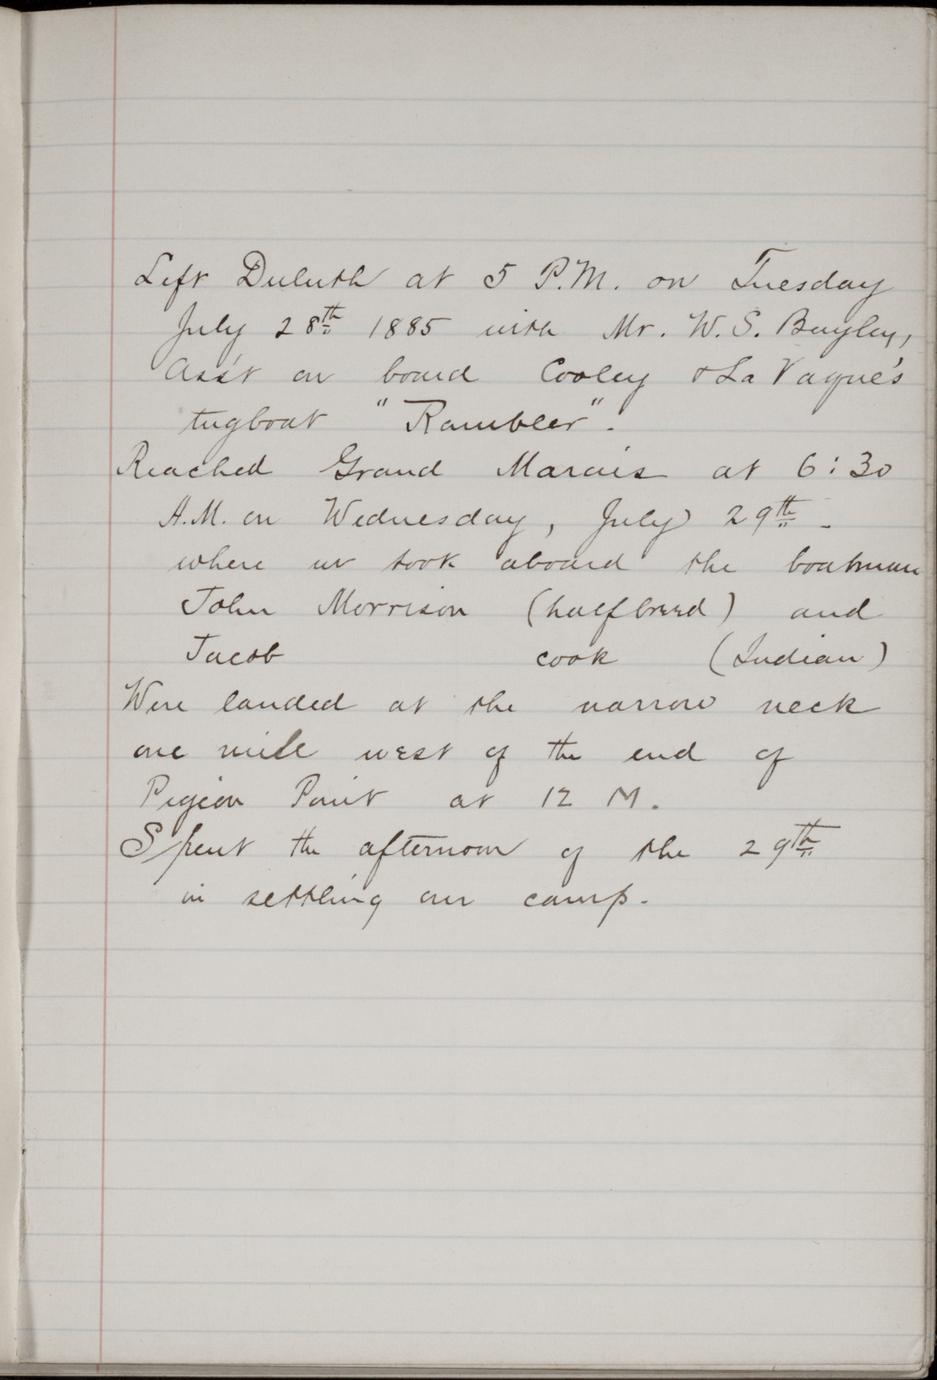 Left Duluth at 5 P.M. on Tuesday
July 28th 1885 with Mr. W. S. Bayley,
Ass't on board Cooley & La Vaque's
tugboat "Rambler".
Reached Grand Marais at 6:30
A.M. on Wednesday, July 29th -
where we took aboard the boatman
John Morrison (halfbreed) and
Jacob cook (Indian)
Were landed at the narrow neck
one mile west of the end of
Pigeon Point at 12 M.
Spent the afternoon of the 29th
in settling our camp.